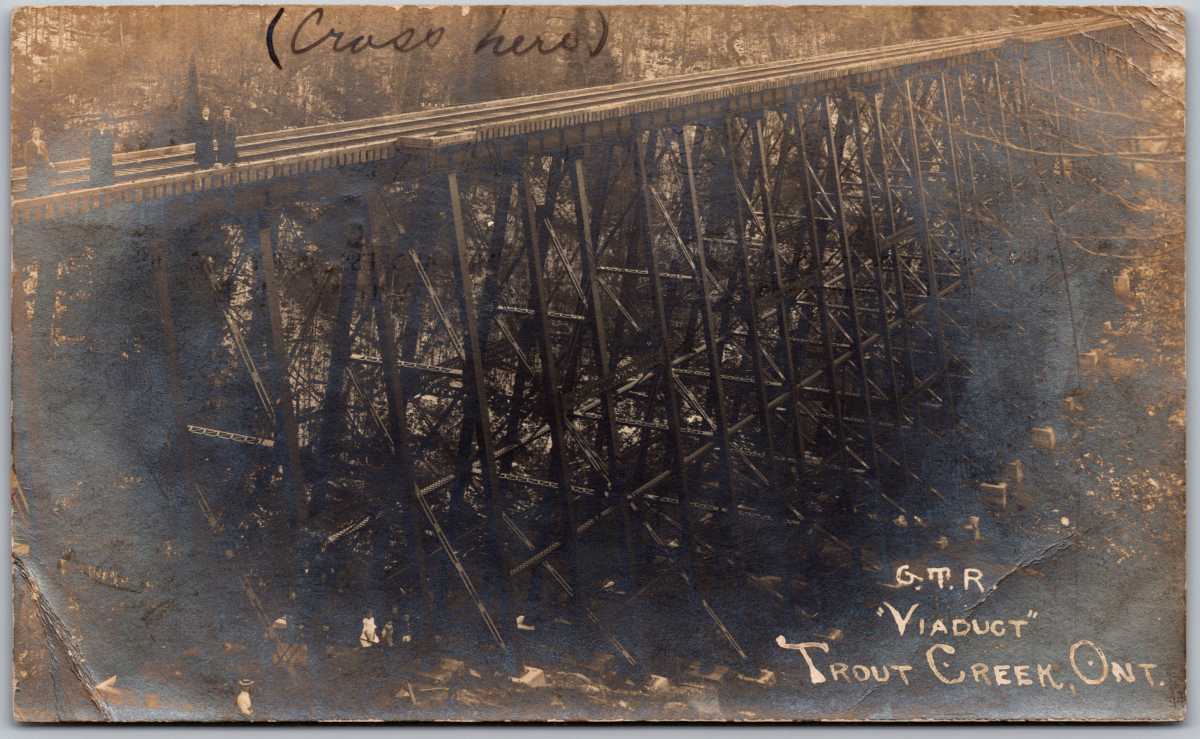 (Cross here)
G.T.R.
"VIADUCT"
TROUT CREEK, ONT.